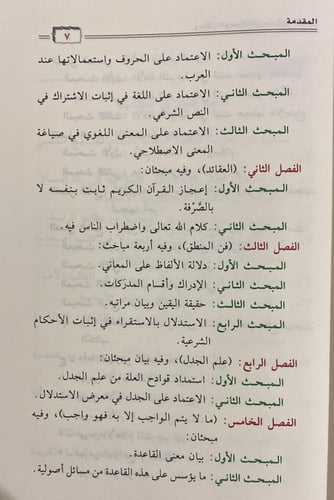 المقدمة
٧
المبحث الأول: الاعتماد على الحروف واستعمالاتها عند
العرب.
المبحث الثاني: الاعتماد على اللغة في إثبات الاشتراك في
النص الشرعي.
المبحث الثالث: الاعتماد على المعنى اللغوي في صياغة
المعنى الاصطلاحي.
الفصل الثاني: (العقائد)، وفيه مبحثان:
المبحث الأول: إعجاز القرآن الكريم ثابت بنفسه لا
بالصَّرْفة.
المبحث الثاني: كلام الله تعالى واضطراب الناس فيه.
الفصل الثالث: (فن المنطق)، وفيه أربعة مباحث:
المبحث الأول: دلالة الألفاظ على المعاني.
المبحث الثاني: الإدراك وأقسام المدرَكات.
المبحث الثالث: حقيقة اليقين وبيان مراتبه.
المبحث الرابع: الاستدلال بالاستقراء في إثبات الأحكام
الشرعية.
الفصل الرابع: (علم الجدل)، وفيه بيان مبحثان:
المبحث الأول: استمداد قوادح العلة من علم الجدل.
المبحث الثاني: الاعتماد على الجدل في معرض الاستدلال.
الفصل الخامس: (ما لا يتم الواجب إلا به فهو واجب)، وفيه
مبحثان:
المبحث الأول: بيان معنى القاعدة.
المبحث الثاني: ما يؤسس على هذه القاعدة من مسائل أصولية.